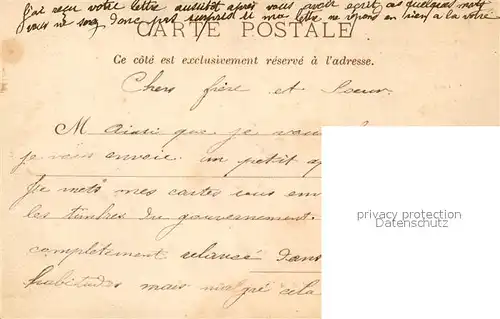 j'ai reçu votre lettre aussitôt après vous avoir écrit ces quelques mots
vous ne soyez donc pas surpris si ma lettre ne répond en rien a la votre
CARTE POSTALE
Ce côté est exclusivement réservé à l'adresse.
Chers frère et Soeur.
M Ainsi que je vous
je vous envoie un petit
Je mets mes cartes sous
les timbres du gouvernement.
complètement relancé dans
habitudes mais malgré cela
privacy protection
Datenschutz